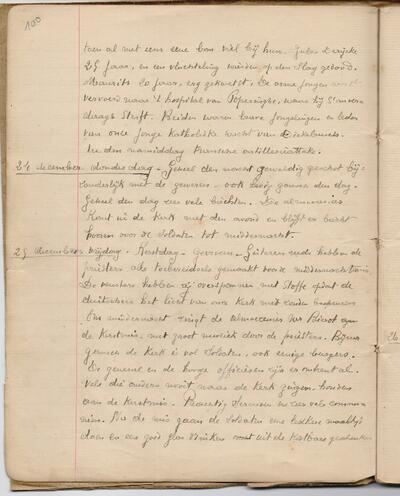 100
toen al met eens eene bom viel bij hun. Jules Derijcke
25 jaar, en een vluchteling wierden op den slag gedood.
Maurits 20 jaar, erg gekwetst. De arme jongen wordt
vervoerd naar 't hospitaal van Poperinghe, waar hij 's anderen
daags sterft. Beiden waren brave jongelingen en leden
van onze jonge katholieke wacht van Dickebusch.
In den namiddag Fransche artillerieattake.
24 december donderdag - Geheel den nacht geweldig geschot bij-
zonderlijk met de geweren - ook bezig gansch den dag.
Geheel den dag zeer vele biechten. De almoeniers
komt in de kerk met den avond en blijft er biecht
hooren voor de soldaten tot middernacht.
25 december vrijdag - Kerstdag - Gevrozen - Gisteren reeds hebben de
priesters alle toebereidsels gemaakt voor de middernachtmis.
De vensters hebben zij overspannen met stoffe opdat de
duitschers het licht van onze kerk niet zouden bespeuren
Om middernacht zingt de almoezenier
de kerstmis, met groot muziek door de priesters. Bijna
geheel de kerk is vol soldaten, ook eenige burgers.
De generie en de hooge officieren zijn er omtrent al.
Vele die anders nooit naar de kerk gingen, houden
aan de kerstmis. Prachtig sermoen en zeer vele commu-
nien. Na de mis gaan de soldaten eene lekkere maaltijd
doen en een goed glas drinken voort uit de kostbare geschenken
26